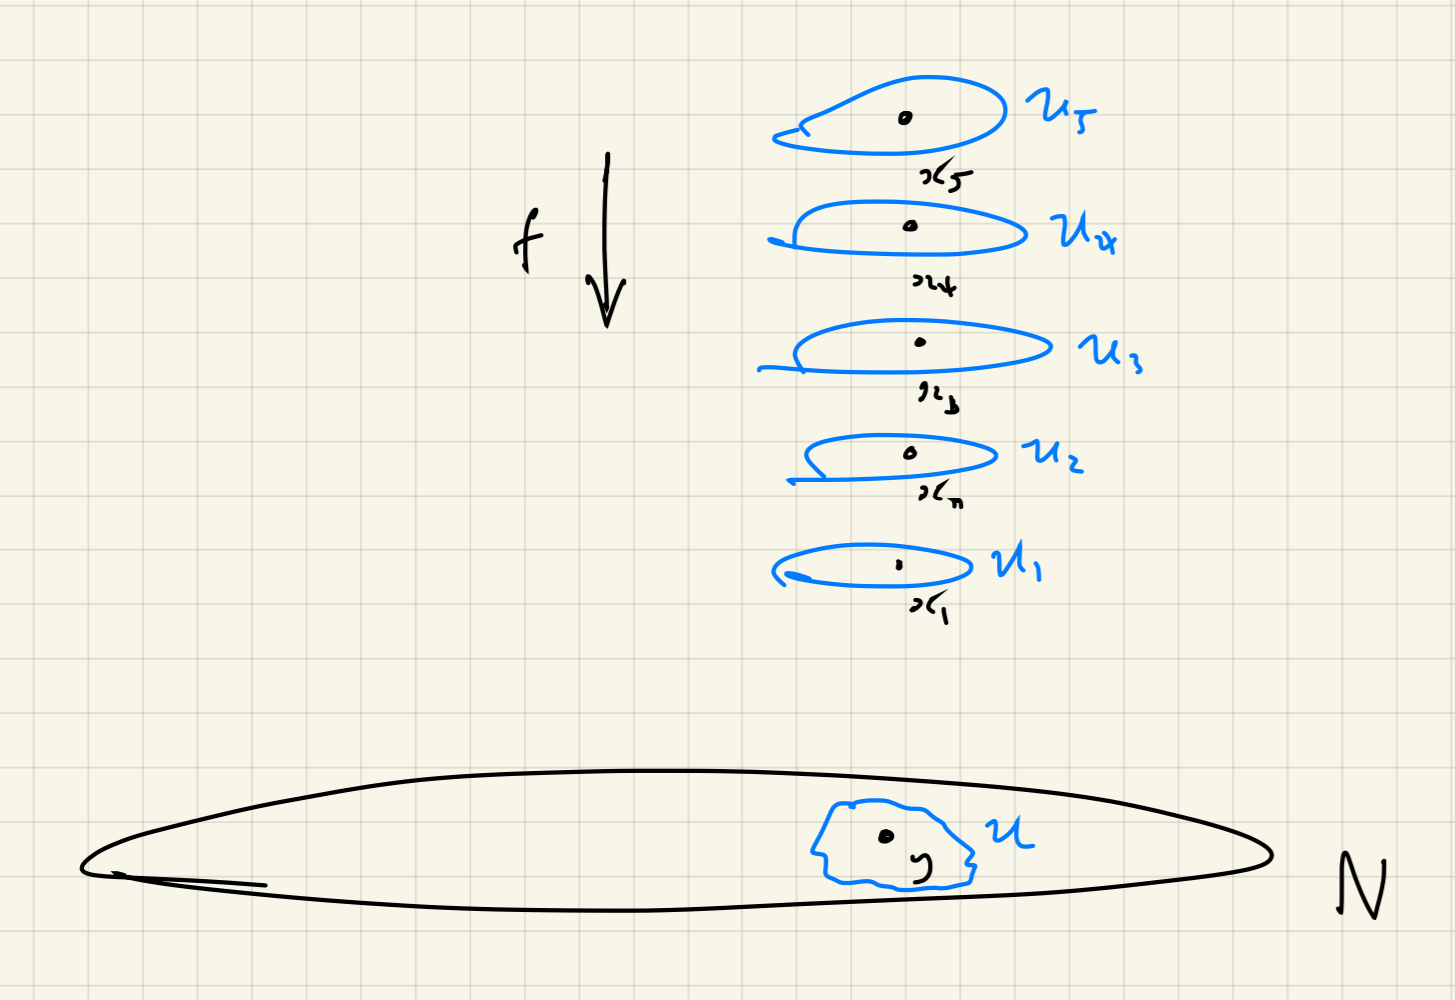 U₅
x₅
f
U₄
x₄
U₃
x₃
U₂
x₂
U₁
x₁
U
y
N